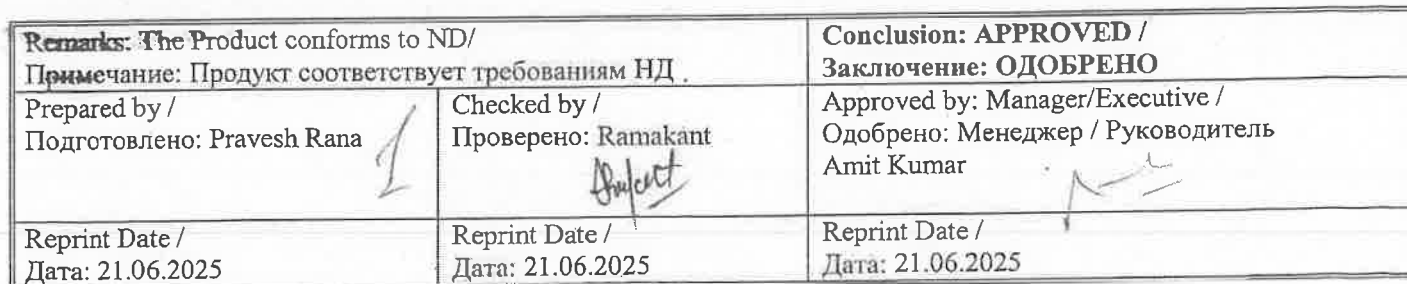 Remarks: The Product conforms to ND/
Примечание: Продукт соответствует требованиям НД .
Conclusion: APPROVED /
Заключение: ОДОБРЕНО
Prepared by /
Подготовлено: Pravesh Rana
Checked by /
Проверено: Ramakant
Approved by: Manager/Executive /
Одобрено: Менеджер / Руководитель
Amit Kumar
Reprint Date /
Дата: 21.06.2025
Reprint Date /
Дата: 21.06.2025
Reprint Date /
Дата: 21.06.2025